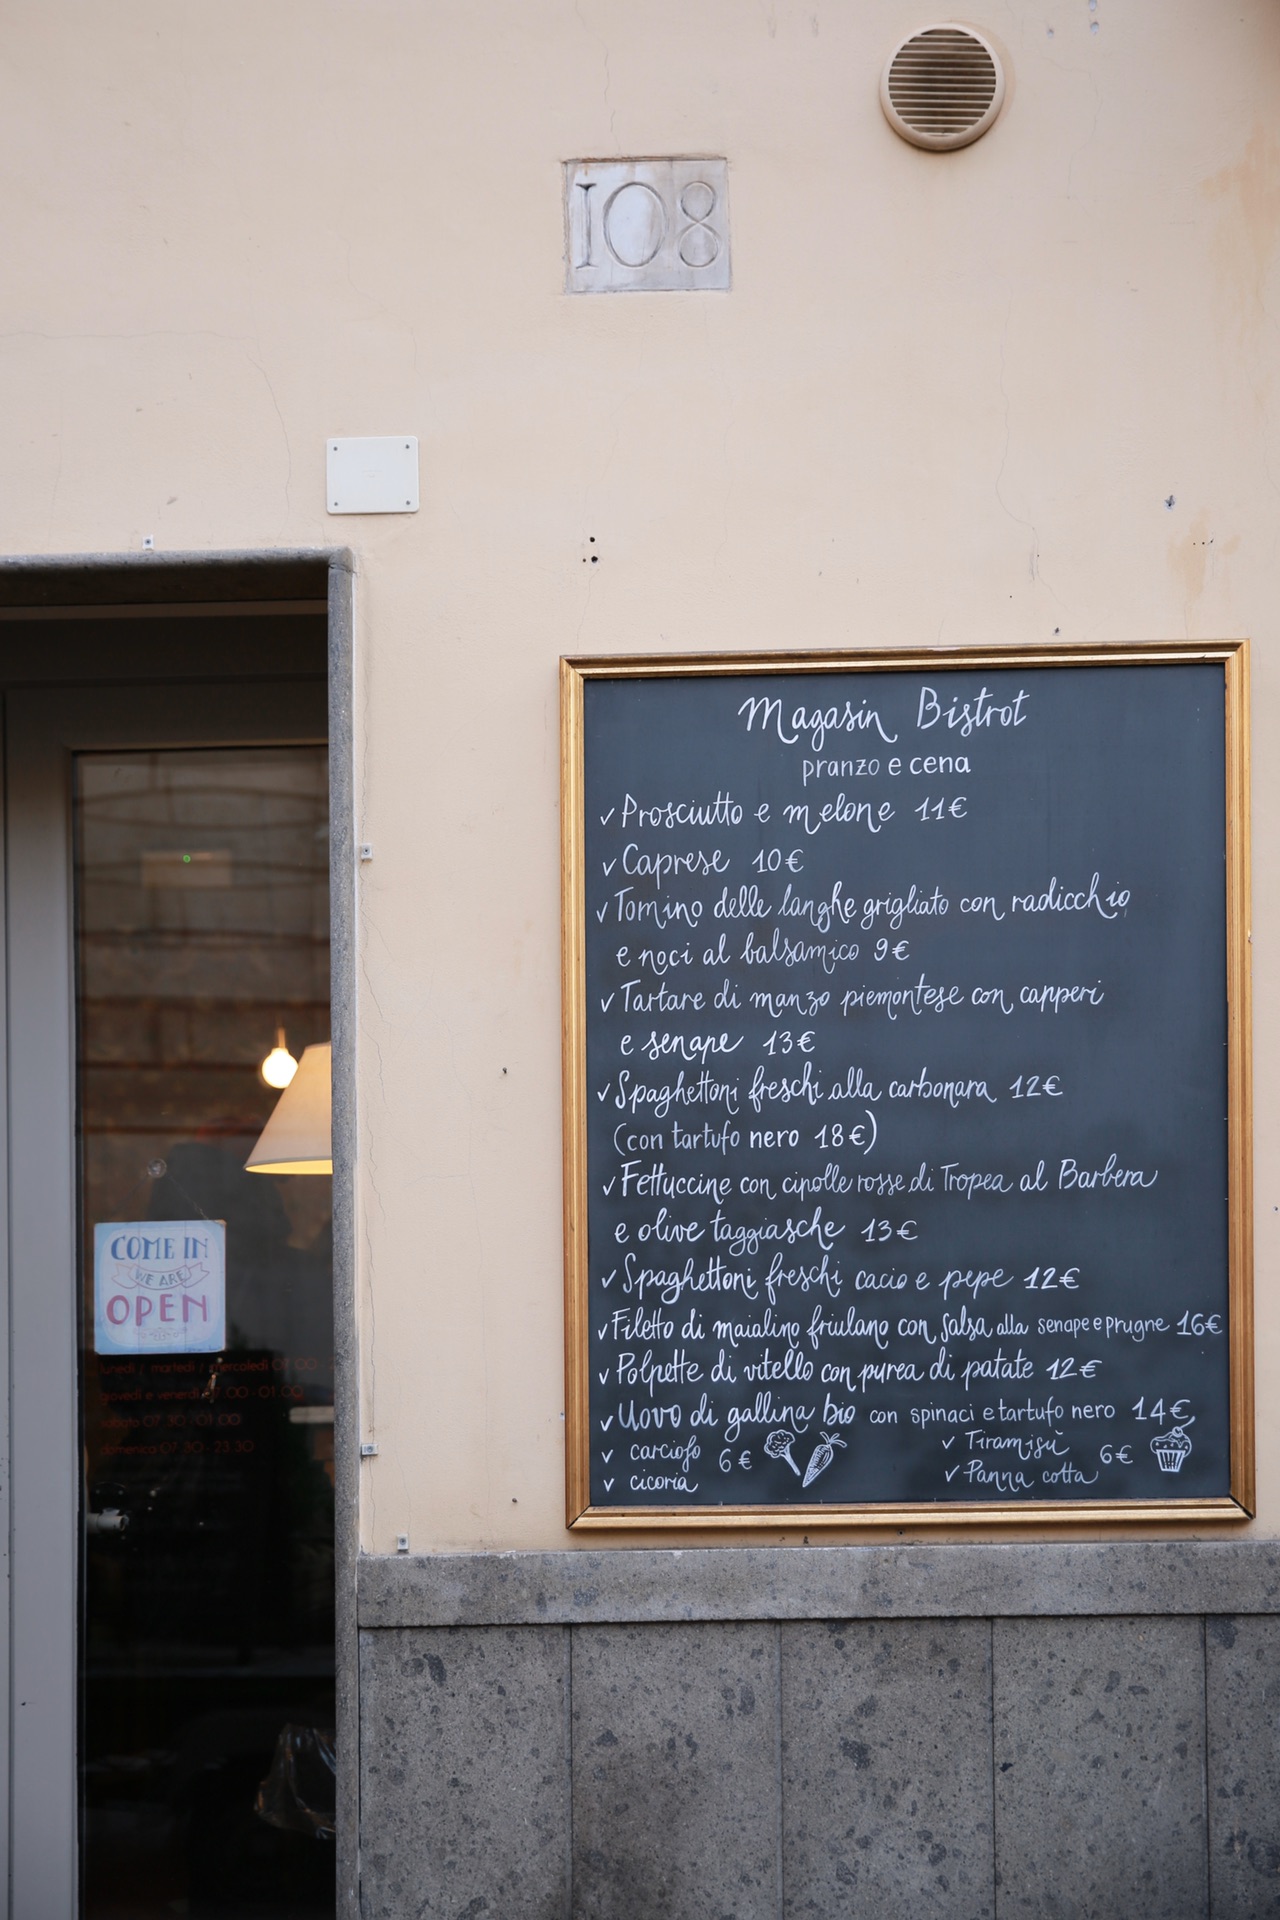 108
Magasin Bistrot
pranzo e cena
✓ Prosciutto e melone 11€
✓ Caprese 10€
✓ Tomino delle langhe grigliato con radicchio
e noci al balsamico 9€
✓ Tartare di manzo piemontese con capperi
e senape 13€
✓ Spaghettoni freschi alla carbonara 12€
(con tartufo nero 18€)
✓ Fettuccine con cipolle rosse di Tropea al Barbera
e olive taggiasche 13€
✓ Spaghettoni freschi cacio e pepe 12€
✓ Filetto di maialino friulano con salsa alla senape e prugne 16€
✓ Polpette di vitello con purea di patate 12€
✓ Uovo di gallina bio con spinaci e tartufo nero 14€
✓ carciofo 6€
✓ cicoria
✓ Tiramisù 6€
✓ Panna cotta
COME IN
WE ARE
OPEN
lunedì / martedì / mercoledì 07.00 -
giovedì e venerdì 07.00 - 01.00
sabato 07.30 - 01.00
domenica 07.30 - 23.30